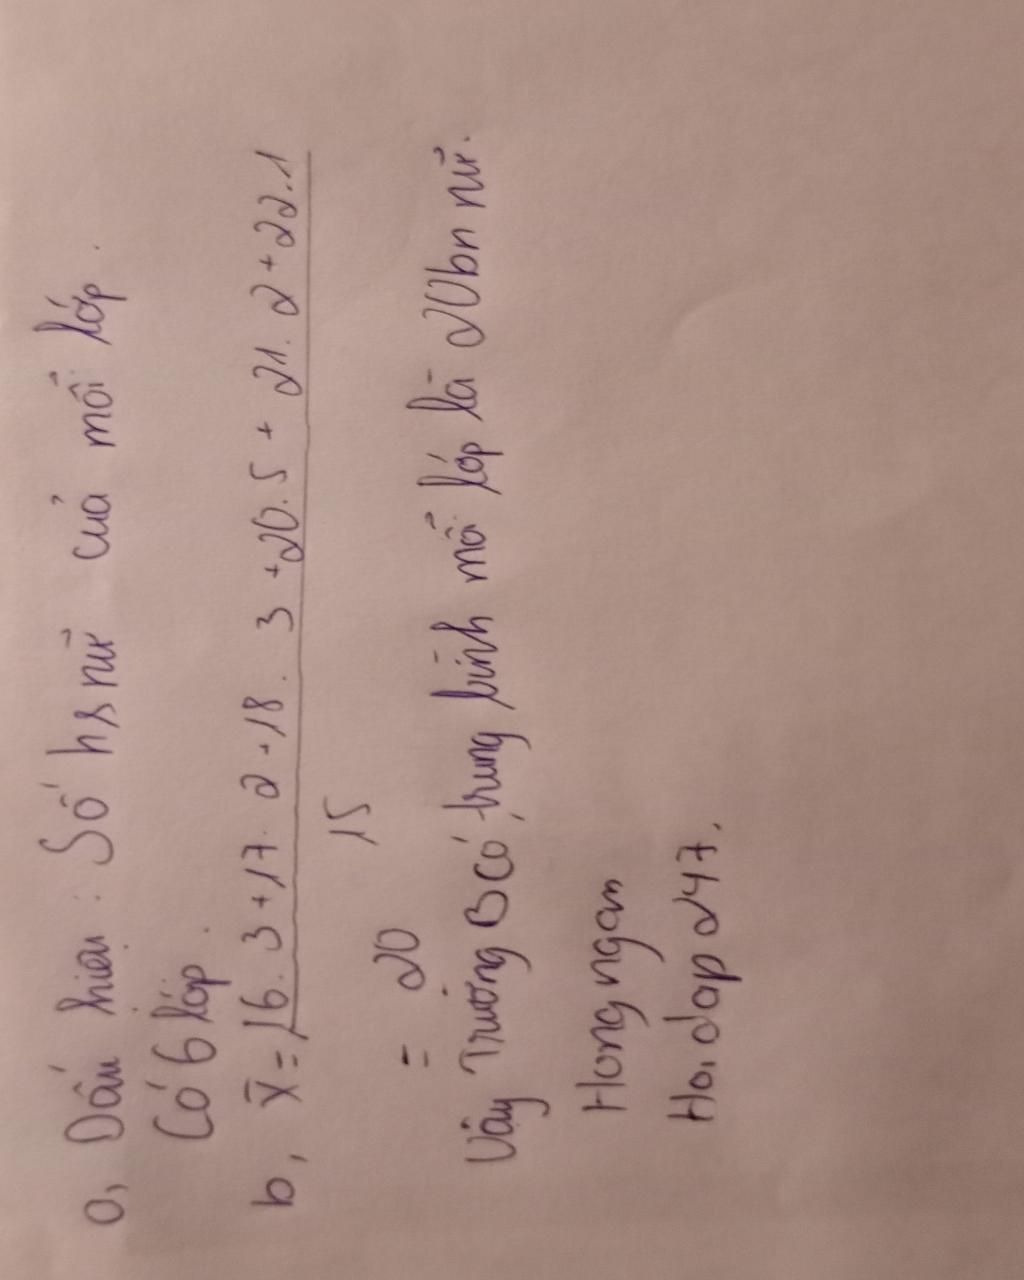 a, Dấu hiệu : Số hs nữ của mỗi lớp.
Có 6 lớp.
b, X̄ = 16.3+17.2+18.3+20.5+21.2+22.1
15
= 20
Vậy Trường B có trung bình mỗi lớp là 20bn nữ.
Hongngan
Hoidap247.